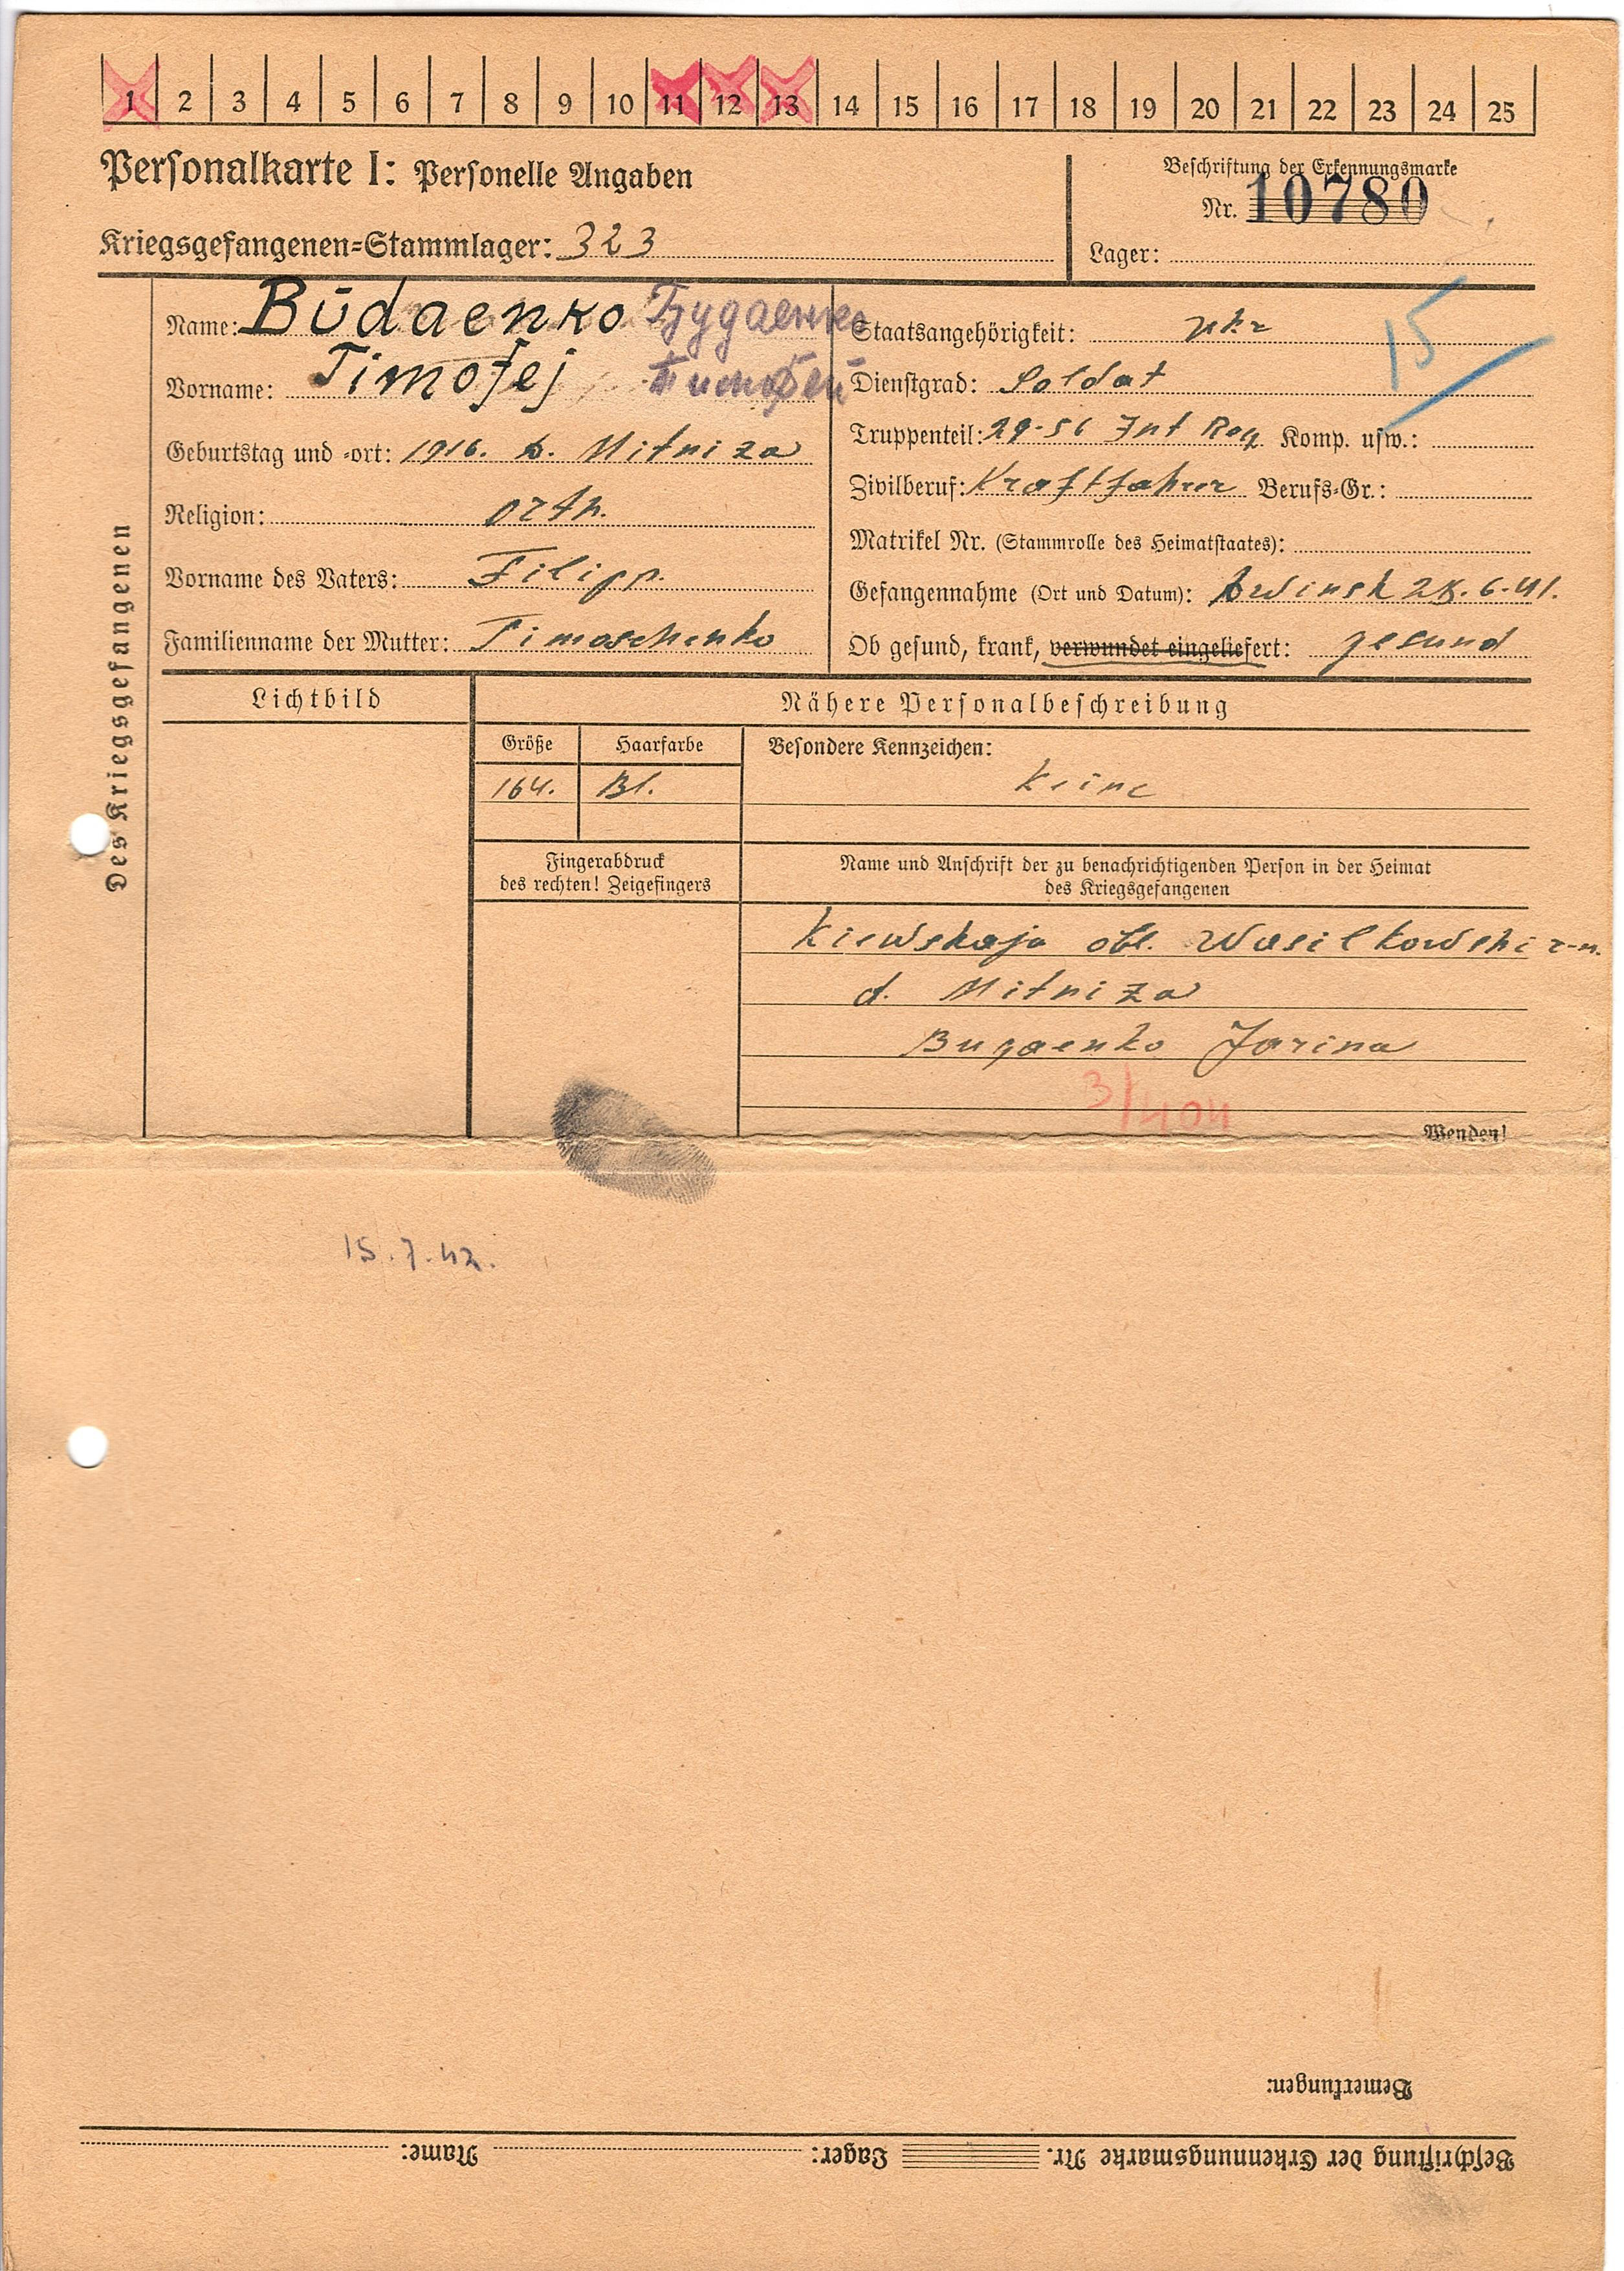 1 2 3 4 5 6 7 8 9 10 11 12 13 14 15 16 17 18 19 20 21 22 23 24 25
Personalkarte I: Personelle Angaben
Beschriftung der Erkennungsmarke
Nr. 10780
Kriegsgefangenen-Stammlager: 323
Lager:
Des Kriegsgefangenen
Name: Būdaenko Будаенко
Vorname: Timofej Тимофей
Geburtstag und -ort: 1916. D. Mitniza
Religion: orth.
Vorname des Vaters: Filipp.
Familienname der Mutter: Timoschenko
Staatsangehörigkeit: ukr
15
Dienstgrad: Soldat
Truppenteil: 29-56 Inf Reg Komp. usw.:
Zivilberuf: Kraftfahrer Berufs-Gr.:
Matrikel Nr. (Stammrolle des Heimatstaates):
Gefangennahme (Ort und Datum): Dwinsk 28.6.41.
Ob gesund, krank, verwundet eingeliefert: gesund
Lichtbild
Nähere Personalbeschreibung
Größe Haarfarbe
164. Bl.
Besondere Kennzeichen:
Keine
Fingerabdruck
des rechten! Zeigefingers
Name und Anschrift der zu benachrichtigenden Person in der Heimat
des Kriegsgefangenen
Kiewskaja obl. Wasilkowski r-n.
d. Mitniza
Bugaenko Jarina
3/404
Wenden!
15.7.42.
Bemerkungen:
Beschriftung der Erkennungsmarke Nr. Lager: Name: